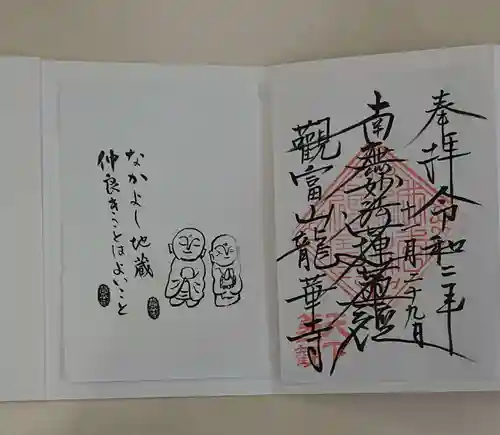 奉拝 令和二年
十一月二十九日
南無妙法蓮華経
観富山龍華寺
天下
なかよし地蔵
仲良きことはよいこと